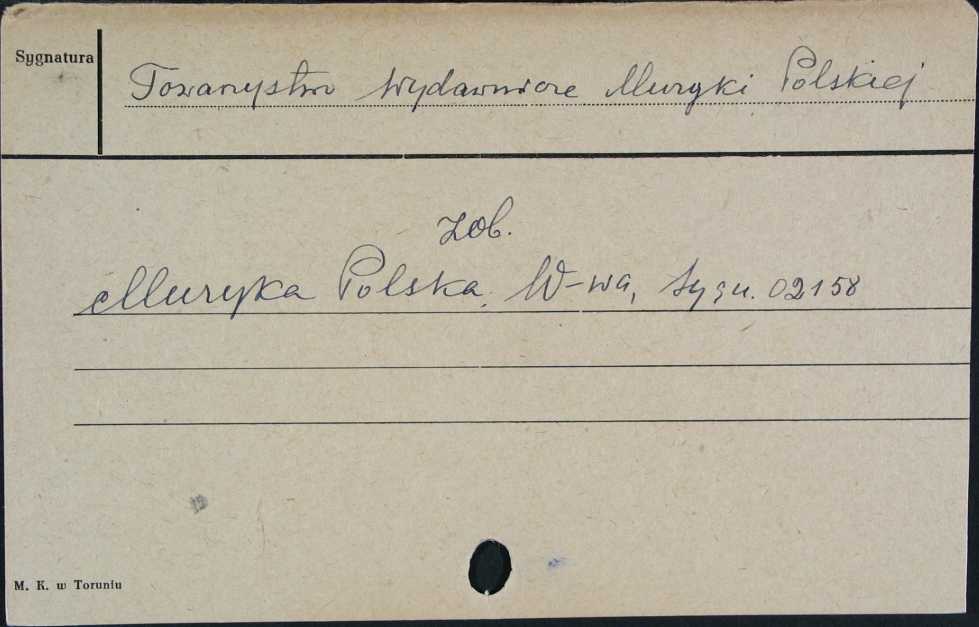 Sygnatura
Towarzystwo Wydawnicze Muzyki Polskiej
zob.
Muzyka Polska, W-wa, sygn. 02158
M. K. w Toruniu